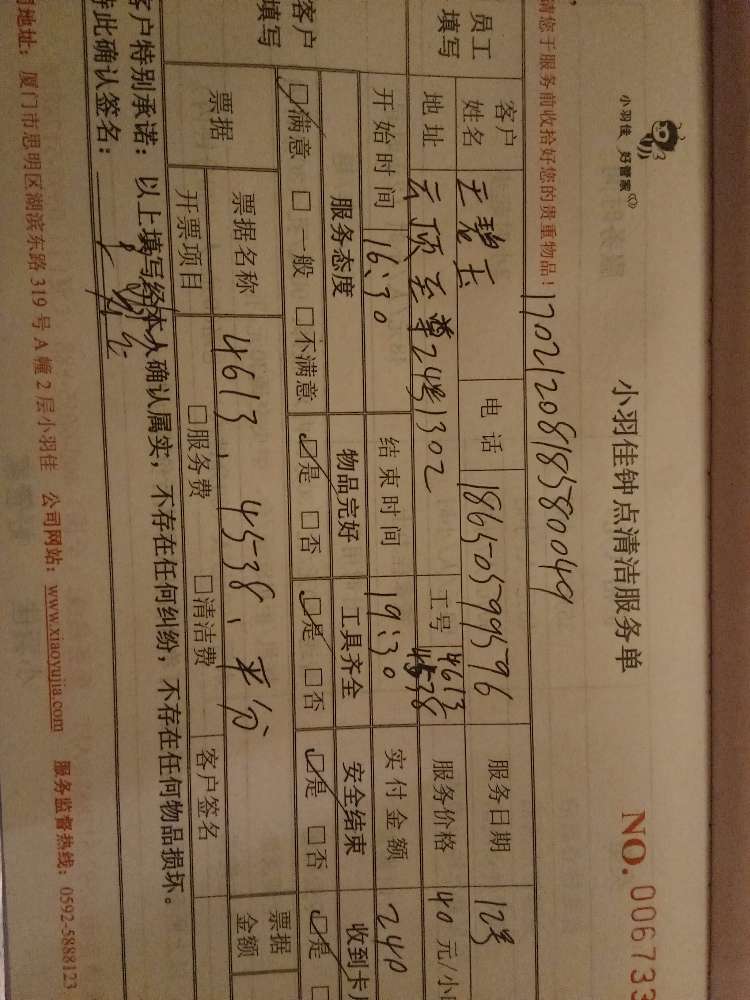 小羽佳 好管家
小羽佳钟点清洁服务单
NO. 006733
请您于服务前收拾好您的贵重物品！ 1702120818580049
员工填写 客户姓名 王碧玉 电话 18650599596 服务日期 12号
地址 云顶至尊24号1302 工号 4613 4538 服务价格 40 元/小
开始时间 16:30 结束时间 19:30 实付金额 240
客户填写 服务态度 物品完好 工具齐全 安全结束 收到卡
☑满意 □一般 □不满意 ☑是 □否 ☑是 □否 ☑是 □否 ☑是
票据 票据名称 4613、4538、平分 票据金额
开票项目 □服务费 □清洁费 客户签名
客户特别承诺：以上填写经本人确认属实，不存在任何纠纷，不存在任何物品损坏。
特此确认签名：
地址：厦门市思明区湖滨东路319号A幢2层小羽佳 公司网站：www.xiaoyujia.com 服务监督热线：0592-5888123